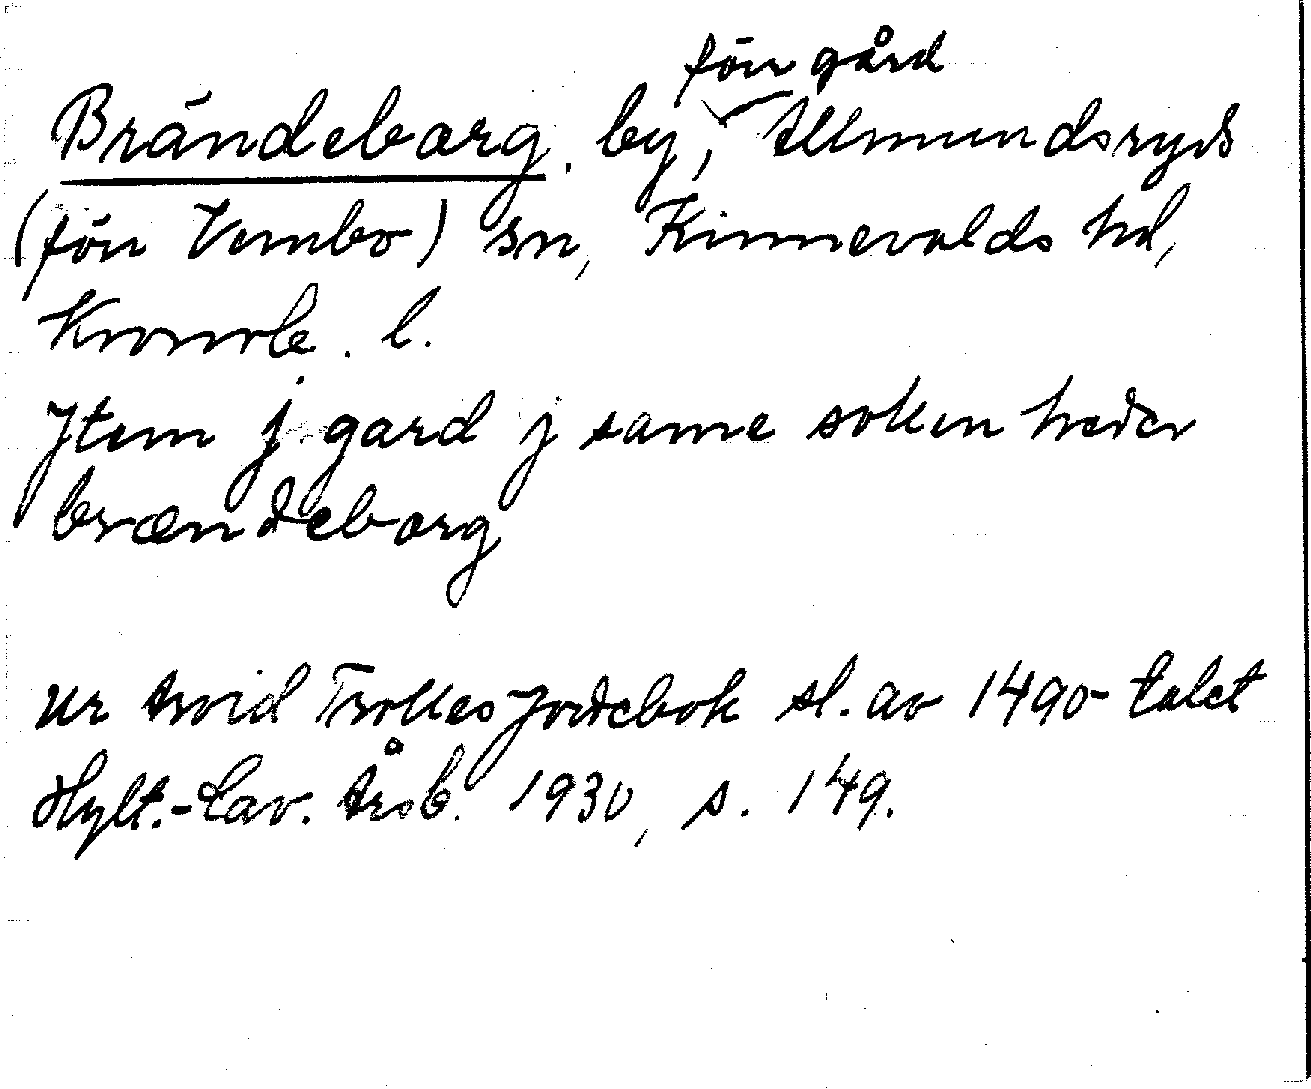 förr gård
Brändeborg. by, Allmundsryds
(förr Vembo) sn, Kinnevalds hd,
Kronob. l.
Jtem j gard j same soken heder
brændeborg
Ur Arvid Trolles Jordebok sl. av 1490-talet
Hylt.-Cav. Årsb. 1930, s. 149.